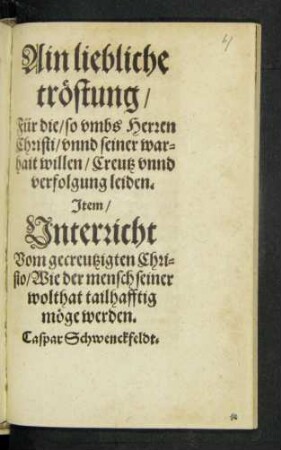 Ain liebliche
tröstung/
Für die/so vmbs Herren
Christi/vnnd seiner war-
hait willen/Creutz vnnd
verfolgung leiden.
Item/
Unterricht
Vom gecreutzigten Chri-
sto/Wie der mensch seiner
wolthat tailhafftig
möge werden.
Caspar Schwenckfeldt.